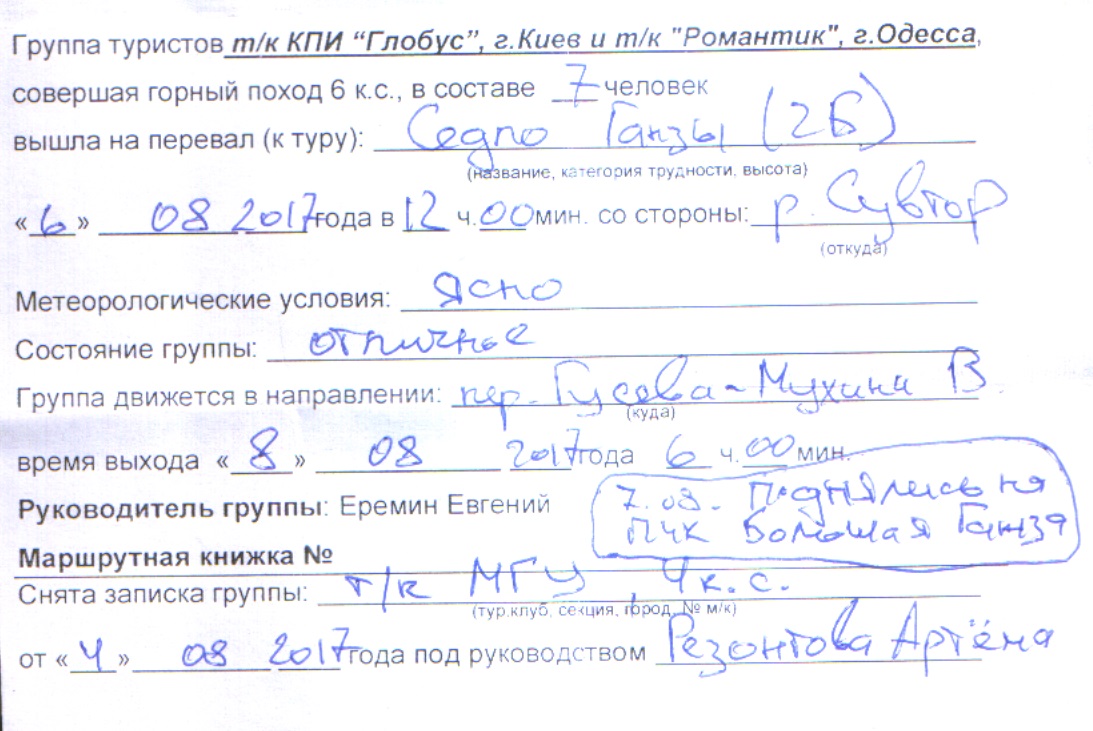 Группа туристов т/к КПИ “Глобус”, г.Киев и т/к "Романтик", г.Одесса,
совершая горный поход 6 к.с., в составе 7 человек
вышла на перевал (к туру): Седло Ганзы (2Б)
(название, категория трудности, высота)
«6» 08 2017года в 12 ч.00мин. со стороны: р. Сувтор
(откуда)
Метеорологические условия: Ясно
Состояние группы: отличное
Группа движется в направлении: пер. Гусева-Мухина В.
(куда)
время выхода «8» 08 2017года 6 ч.00мин.
Руководитель группы: Еремин Евгений
7.08. Поднялись на
пик Большая Ганза
Маршрутная книжка №
Снята записка группы: т/к МГУ, 4к.с.
(тур.клуб, секция, город, № м/к)
от «4» 08 2017года под руководством Резонтова Артёма